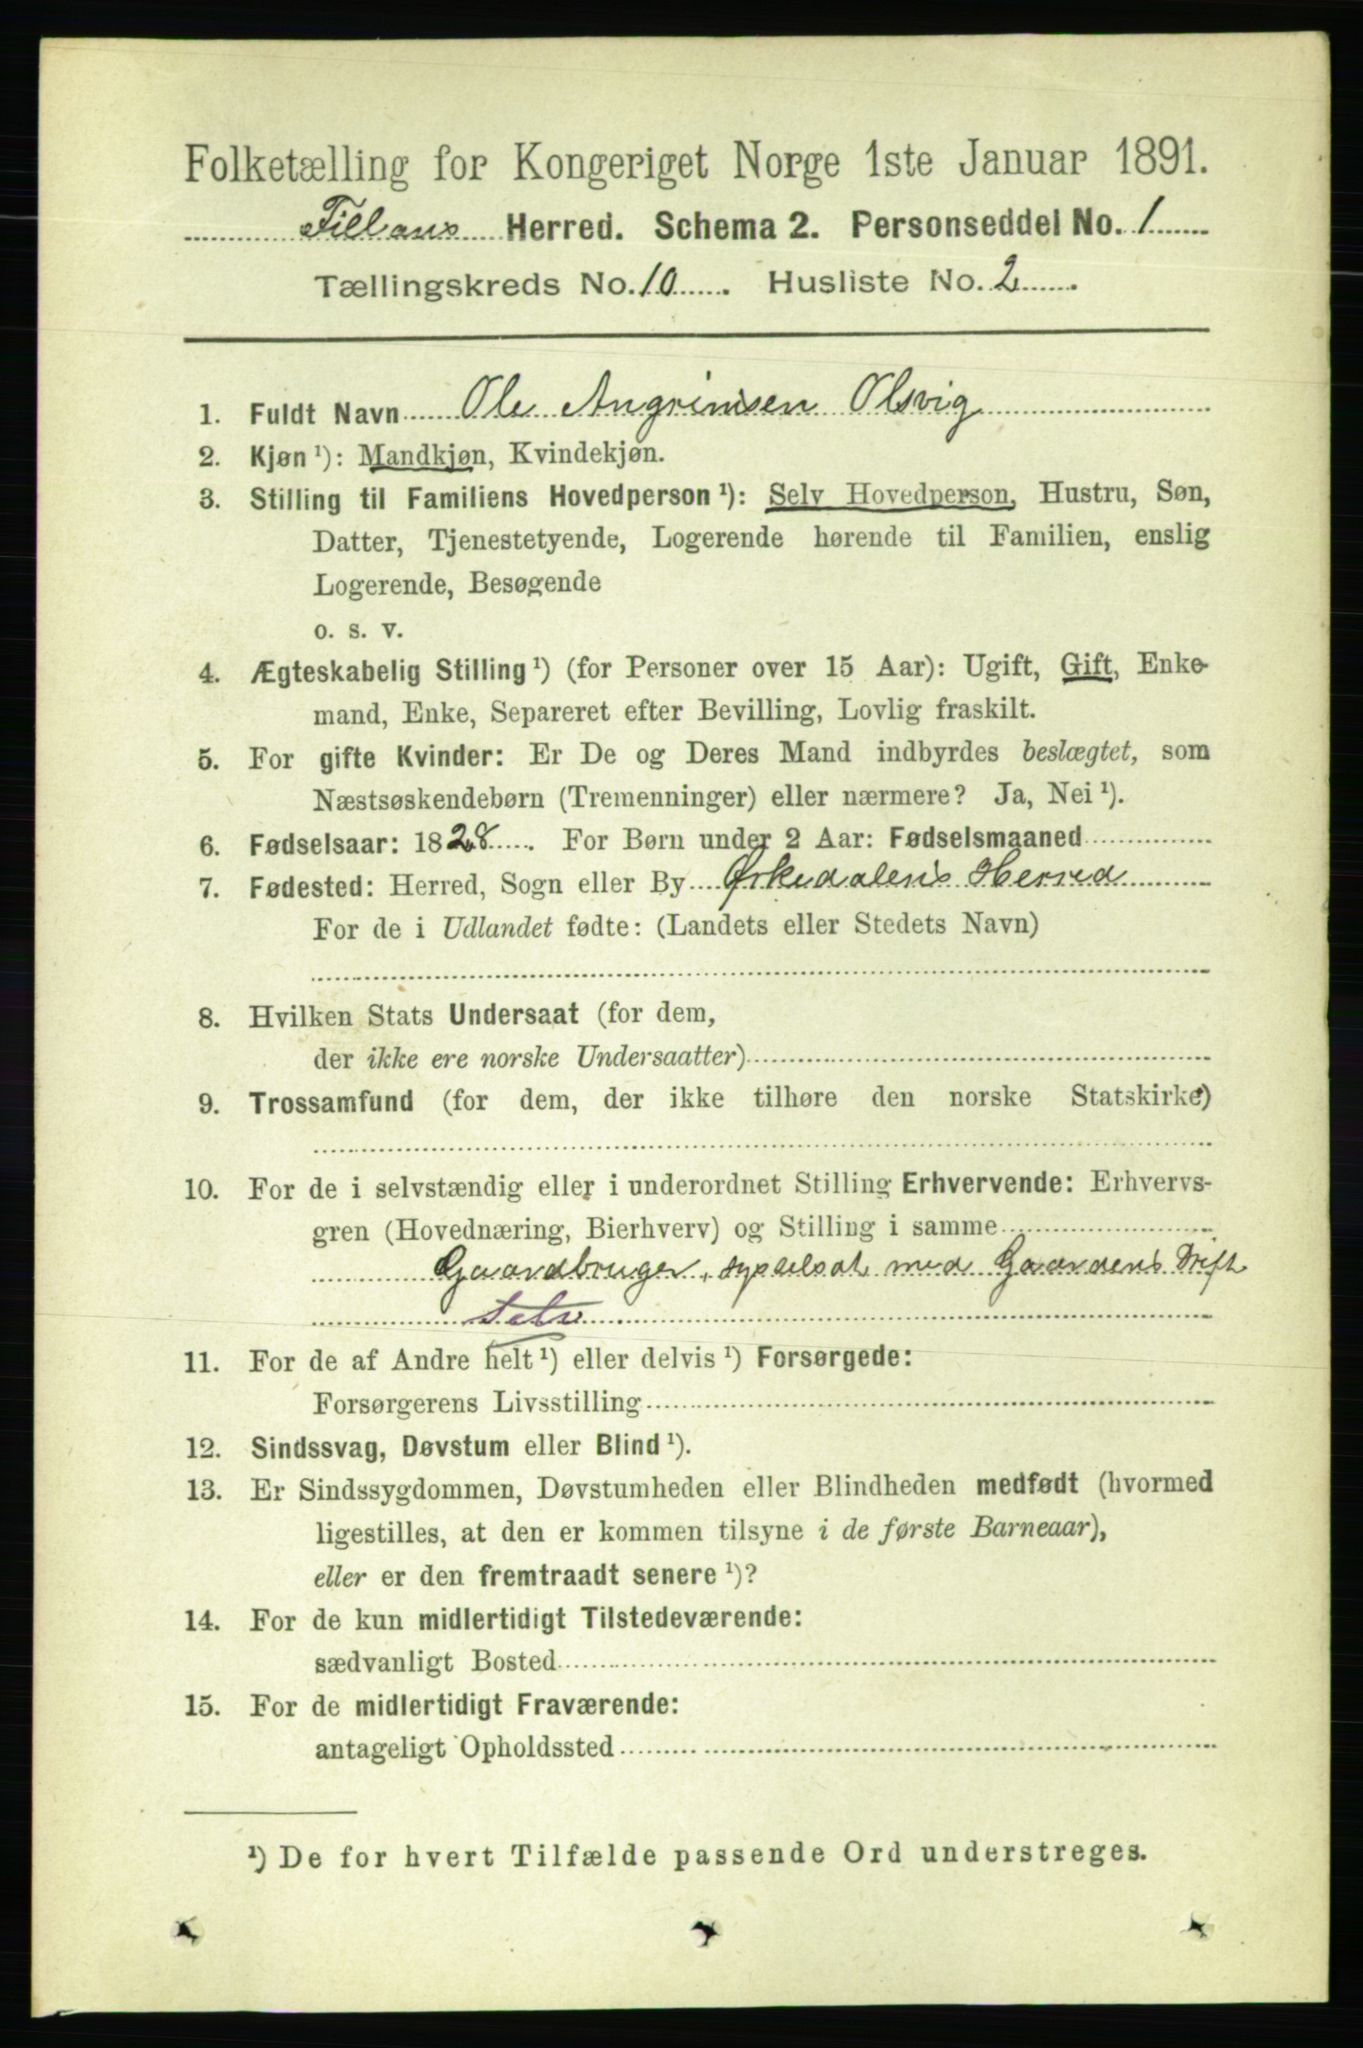 Folketælling for Kongeriget Norge 1ste Januar 1891.
Fillans Herred. Schema 2. Personseddel No. 1
Tællingskreds No. 10. Husliste No. 2.
1. Fuldt Navn Ole Angrimsen Olsvig
2. Kjøn ¹): Mandkjøn, Kvindekjøn.
3. Stilling til Familiens Hovedperson ¹): Selv Hovedperson, Hustru, Søn,
Datter, Tjenestetyende, Logerende hørende til Familien, enslig
Logerende, Besøgende
o. s. v.
4. Ægteskabelig Stilling ¹) (for Personer over 15 Aar): Ugift, Gift, Enke-
mand, Enke, Separeret efter Bevilling, Lovlig fraskilt.
5. For gifte Kvinder: Er De og Deres Mand indbyrdes beslægtet, som
Næstsøskendebørn (Tremenninger) eller nærmere? Ja, Nei ¹).
6. Fødselsaar: 1828. For Børn under 2 Aar: Fødselsmaaned
7. Fødested: Herred, Sogn eller By Ørkedalens Herred
For de i Udlandet fødte: (Landets eller Stedets Navn)
8. Hvilken Stats Undersaat (for dem,
der ikke ere norske Undersaatter)
9. Trossamfund (for dem, der ikke tilhøre den norske Statskirke)
10. For de i selvstændig eller i underordnet Stilling Erhvervende: Erhvervs-
gren (Hovednæring, Bierhverv) og Stilling i samme
Gaardbruger, sysselsat med Gaardens Drift
Selv
11. For de af Andre helt ¹) eller delvis ¹) Forsørgede:
Forsørgerens Livsstilling
12. Sindssvag, Døvstum eller Blind ¹).
13. Er Sindssygdommen, Døvstumheden eller Blindheden medfødt (hvormed
ligestilles, at den er kommen tilsyne i de første Barneaar),
eller er den fremtraadt senere ¹)?
14. For de kun midlertidigt Tilstedeværende:
sædvanligt Bosted
15. For de midlertidigt Fraværende:
antageligt Opholdssted
¹) De for hvert Tilfælde passende Ord understreges.